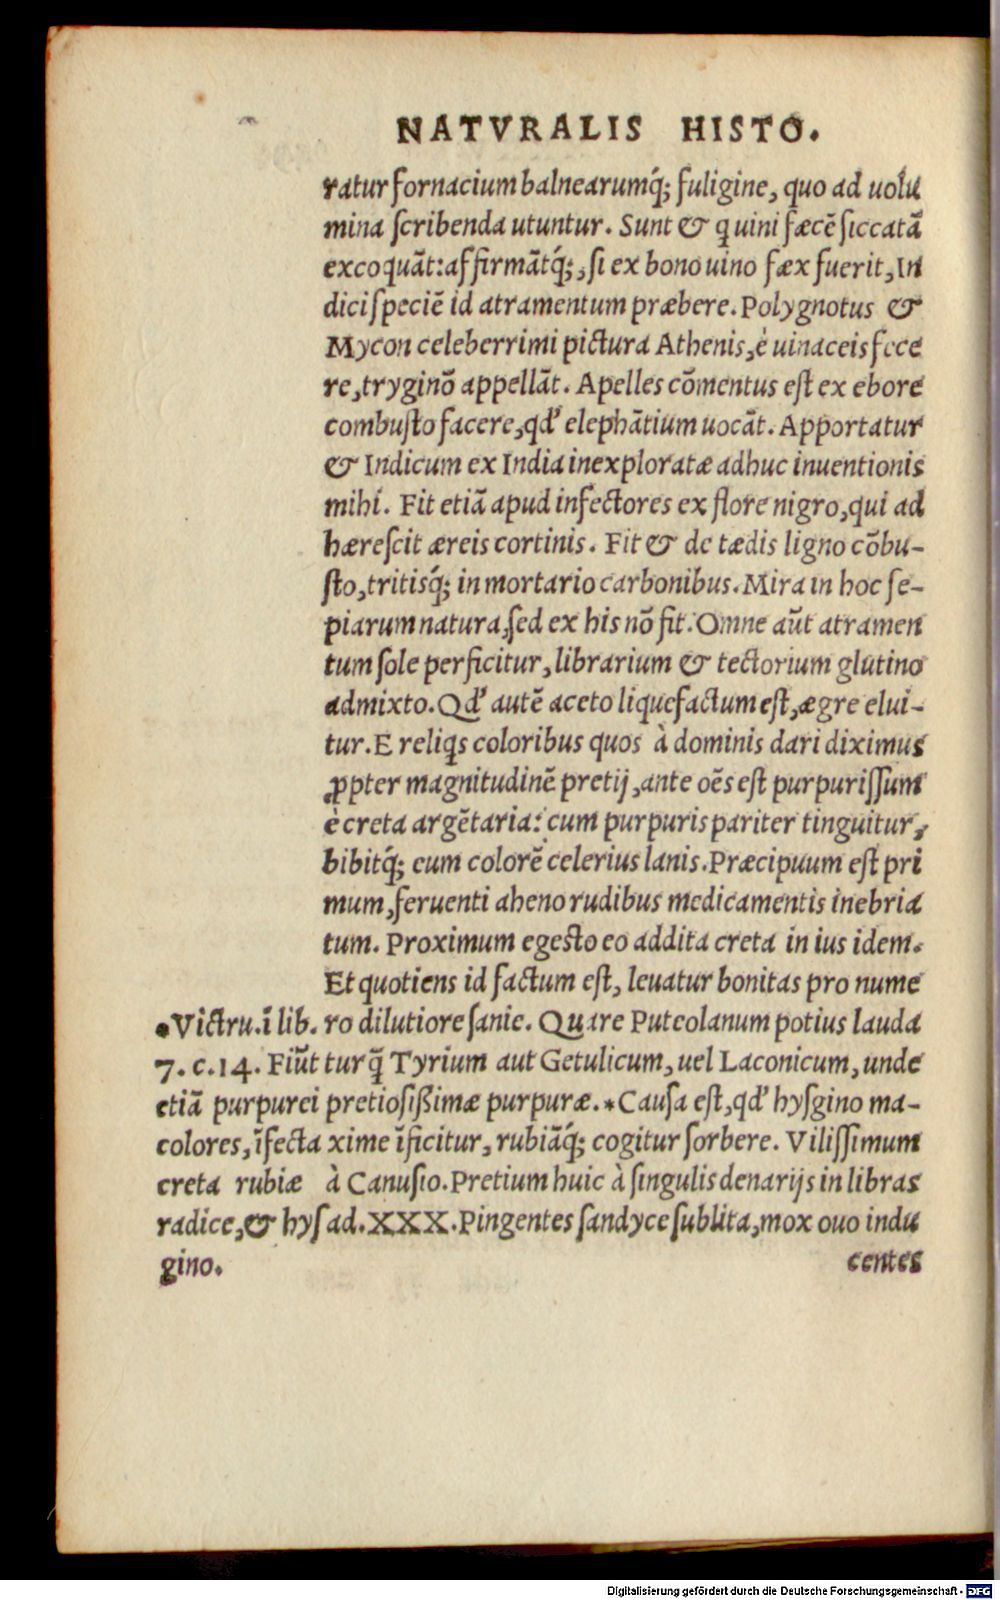 NATVRALIS HISTO.
ratur fornacium balnearumq́; fuligine, quo ad uolu
mina ſcribenda utuntur. Sunt & q uini fæcē ſiccatā
excoquāt: affirmātq́;, ſi ex bono uino fæx fuerit, In
dici ſpeciē id atramentum præbere. Polygnotus &
Mycon celeberrimi pictura Athenis, è uinaceis fece
re, tryginō appellāt. Apelles cōmentus eſt ex ebore
combuſto facere, qd' elephātium uocāt. Apportatur
& Indicum ex India inexploratæ adhuc inuentionis
mihi. Fit etiā apud infectores ex flore nigro, qui ad
hæreſcit æreis cortinis. Fit & de tædis ligno cōbu-
ſto, tritisq́; in mortario carbonibus. Mira in hoc ſe-
piarum natura, ſed ex his nō fit. Omne aūt atramen
tum ſole perficitur, librarium & tectorium glutino
admixto. Qd' autē aceto liquefactum eſt, ægre elui-
tur. E reliq̄s coloribus quos à dominis dari diximus
ꝓpter magnitudinē pretij, ante oēs eſt purpuriſſum
è creta argētaria: cum purpuris pariter tinguitur,
bibitq́; eum colorē celerius lanis. Præcipuum eſt pri
mum, feruenti aheno rudibus medicamentis inebria
tum. Proximum egeſto eo addita creta in ius idem.
Et quotiens id factum eſt, leuatur bonitas pro nume
ro dilutiore ſanie. Quare Puteolanum potius lauda
tur q̄ Tyrium aut Getulicum, uel Laconicum, unde
pretioſißimæ purpuræ.* Cauſa eſt, qd' hyſgino ma-
xime īficitur, rubiāq́; cogitur ſorbere. Viliſſimum
à Canuſio. Pretium huic à ſingulis denarijs in libras
ad. XXX. Pingentes ſandyce ſublita, mox ouo indu
centes
•Victru. ī lib.
7. c. 14. Fiūt
etiā purpurei
colores, īfecta
creta rubiæ
radice, & hyſ
gino.
Digitalisierung gefördert durch die Deutsche Forschungsgemeinschaft - DFG